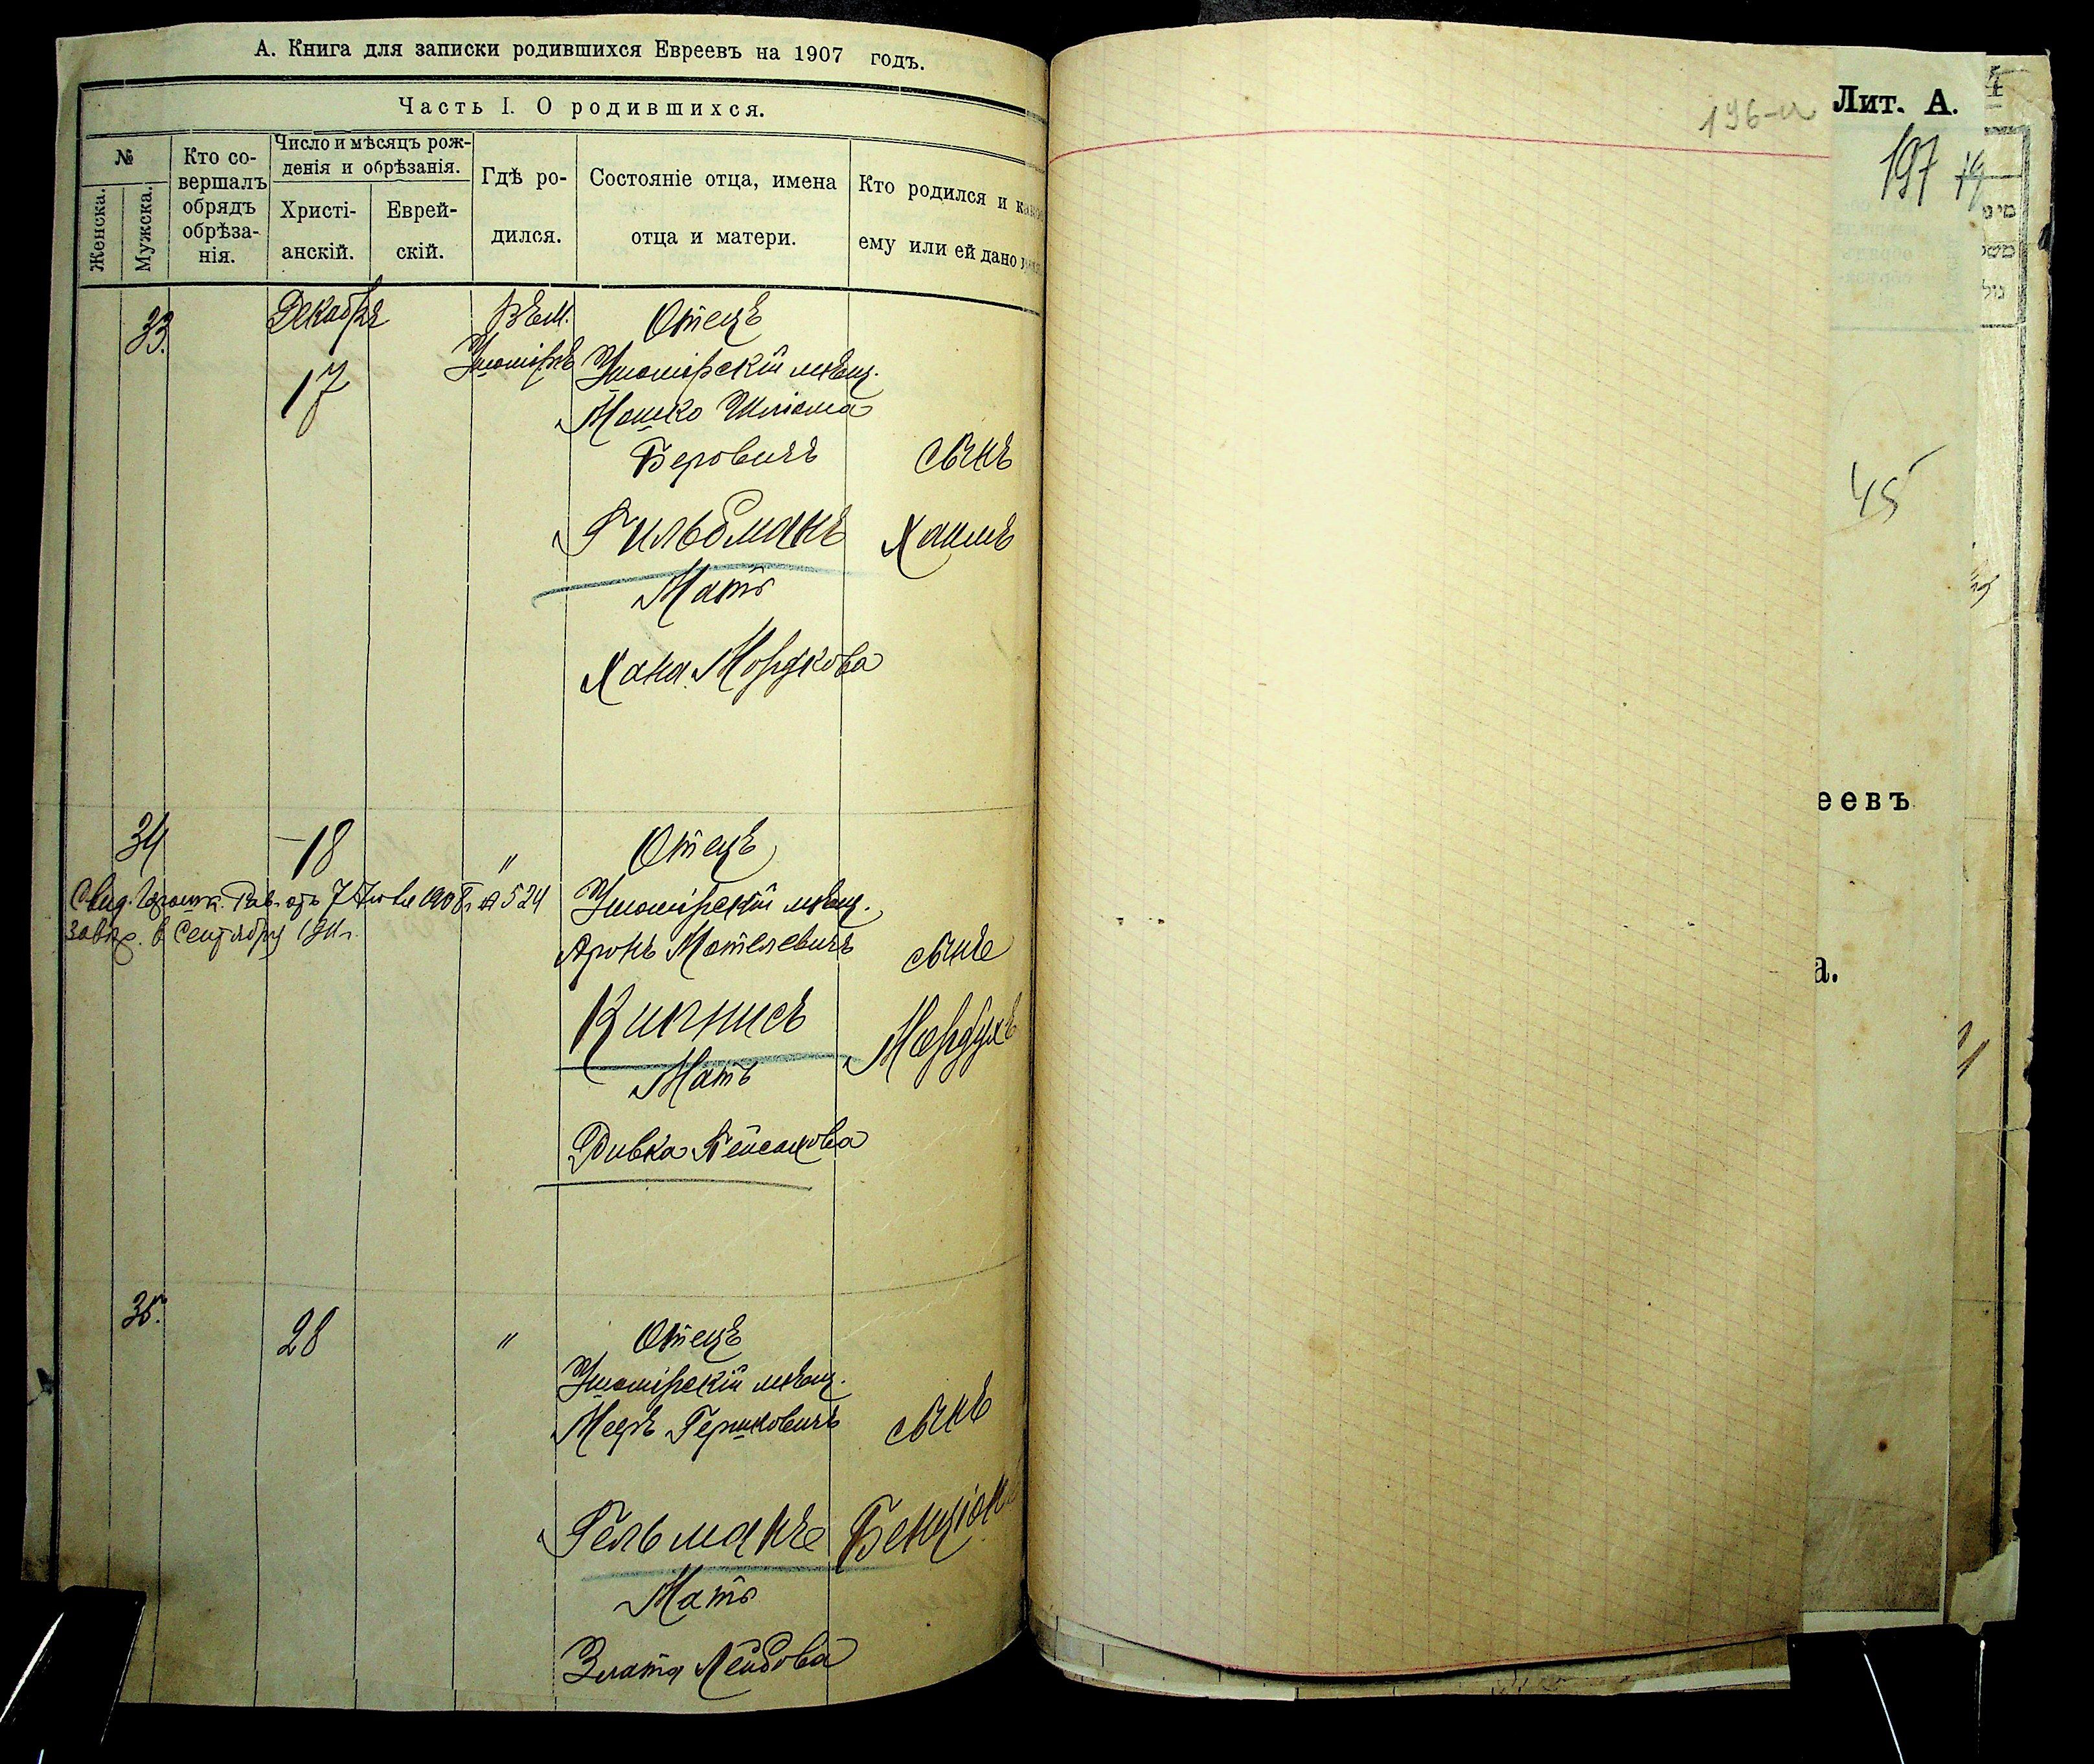 А. Книга для записки родившихся Евреевъ на 1907 годъ.
Часть I. О родившихся.
№
Женска.
Мужска.
Кто со-
вершалъ
обрядъ
обрѣза-
нія.
Число и мѣсяцъ рож-
денія и обрѣзанія.
Христі-
анскій.
Еврей-
скій.
Гдѣ ро-
дился.
Состояніе отца, имена
отца и матери.
Кто родился и како
ему или ей дано
33.
Декабря
17
Въ м.
Ушомірѣ
Отецъ
Ушомірскій мѣщ.
Мошко Шліома
Беровичъ
Гильбманъ
Мать
Хана Мордкова
сынъ
Хаимъ
34
18
"
Свид. 7 1908 г. № 524
в Сентябру
Отецъ
Ушомірскій мѣщ.
Аронъ Мотелевичъ
Кипнисъ
Мать
Ривка Пейсахова
сынъ
Мордухъ
35.
28
"
Отецъ
Ушомірскій мѣщ.
Мееръ Гершковичъ
Гельманъ
Мать
Злата Лейбова
сынъ
Бенціонъ
196-а
Лит. А.
197
19
45
еевъ
а.